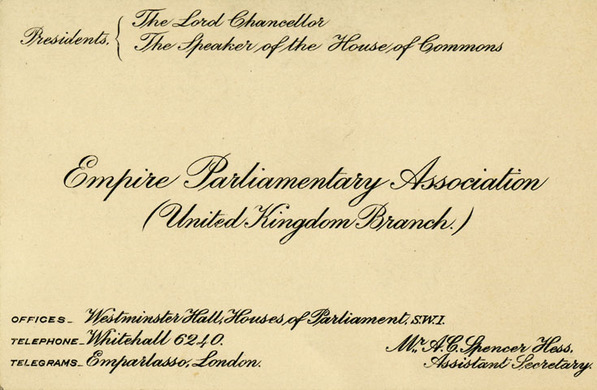 Presidents. { The Lord Chancellor
The Speaker of the House of Commons
Empire Parliamentary Association
(United Kingdom Branch.)
OFFICES_ Westminster Hall, Houses of Parliament, S.W.1.
TELEPHONE_ Whitehall 6240.
TELEGRAMS_ Emparlasso, London.
Mr. A.C. Spencer Hess.
Assistant Secretary.